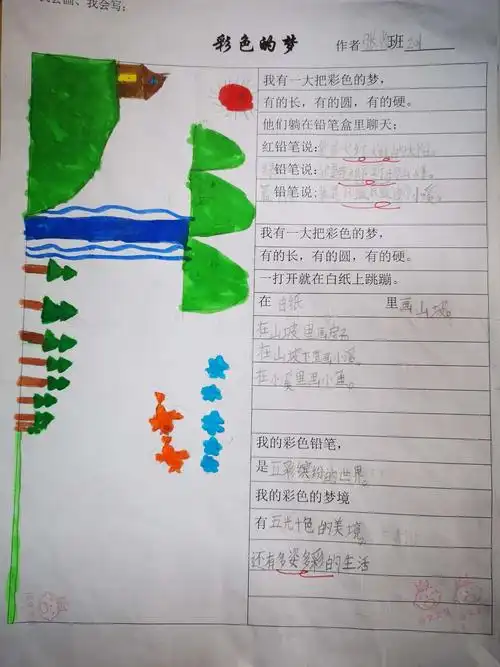 我会画、我会写:
彩色的梦
作者 班
我有一大把彩色的梦,
有的长,有的圆,有的硬。
他们躺在铅笔盒里聊天;
红铅笔说:
铅笔说:
铅笔说: 小溪。
我有一大把彩色的梦,
有的长,有的圆,有的硬。
一打开就在白纸上跳蹦。
在 白纸 里画山坡。
在山坡里画房子
在山坡下里画小溪
在小溪里画小鱼。
我的彩色铅笔,
是五彩缤纷的世界。
我的彩色的梦境
有五光十色的美境。
还有多姿多彩的生活